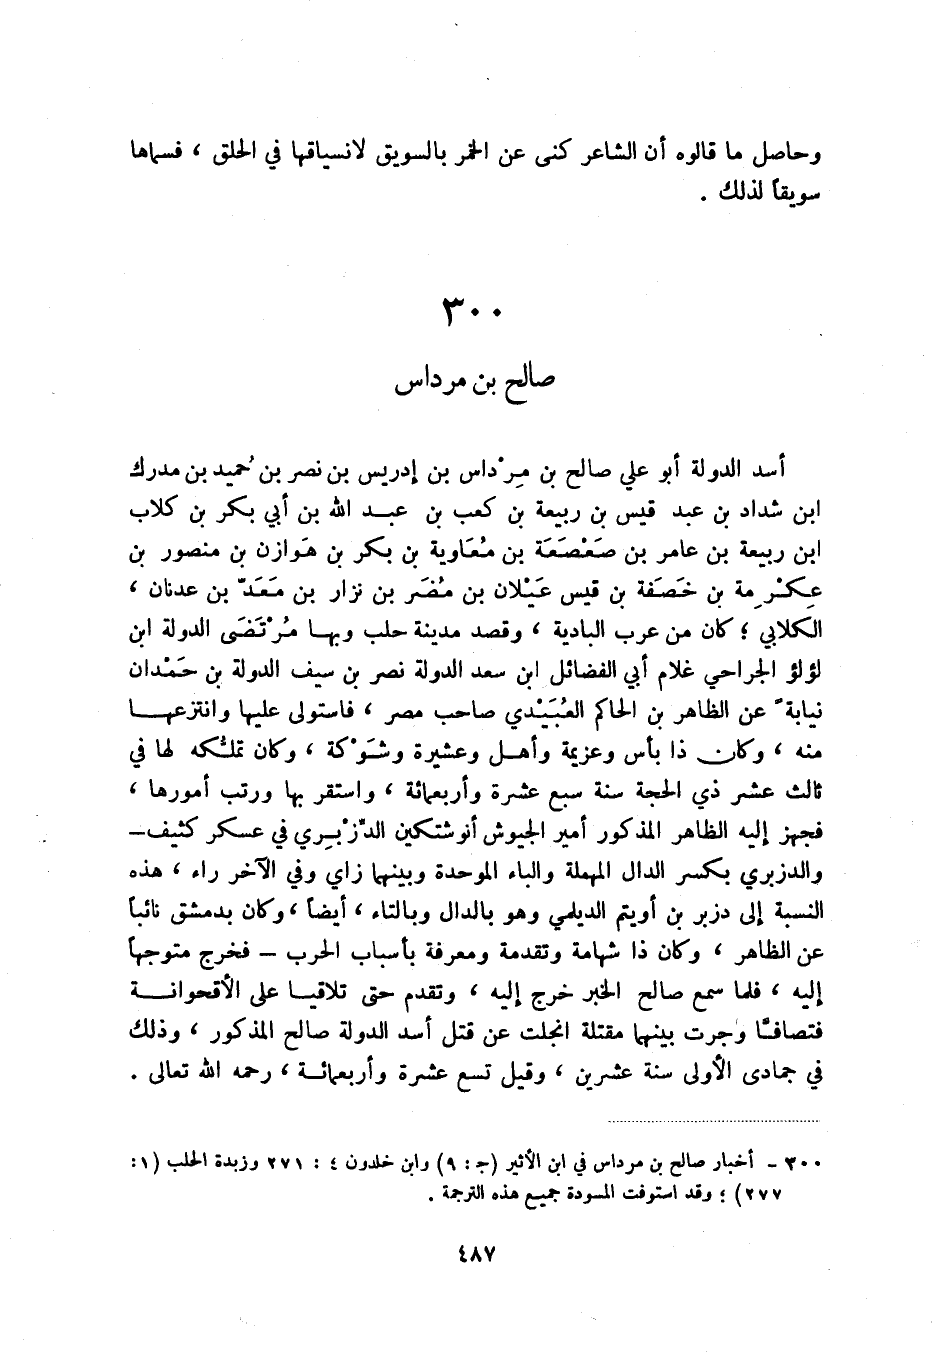 وحاصل ما قالوه أن الشاعر كنى عن الخمر بالسويق لانسياقها في الحلق ، فسماها
سويقاً لذلك .
٣٠٠
صالح بن مرداس
أسد الدولة أبو علي صالح بن مِرْداس بن إدريس بن نصر بن حُميد بن مدرك
ابن شداد بن عبد قيس بن ربيعة بن كعب بن عبد الله بن أبي بكر بن كلاب
ابن ربيعة بن عامر بن صَعْصَعَة بن مُعَاوية بن بكر بن هَوازن بن منصور بن
عِكْرِمة بن خَصَفة بن قيس عَيْلان بن مُضَر بن نزار بن مَعَدّ بن عدنان ،
الكلابي ؛ كان من عرب البادية ، وقصد مدينة حلب وبها مُرْتَضَى الدولة ابن
لؤلؤ الجراحي غلام أبي الفضائل ابن سعد الدولة نصر بن سيف الدولة بن حَمْدان
نيابةً عن الظاهر بن الحاكم العُبَيْدي صاحب مصر ، فاستولى عليها وانتزعها
منه ، وكان ذا بأس وعزيمة وأهل وعشيرة وشَوْكة ، وكان تملُّكه لها في
ثالث عشر ذي الحجة سنة سبع عشرة وأربعمائة ، واستقر بها ورتب أمورها ،
فجهز إليه الظاهر المذكور أمير الجيوش أنوشتكين الدِّزْبِري في عسكر كثيف–
والدزبري بكسر الدال المهملة والباء الموحدة وبينهما زاي وفي الآخر راء ، هذه
النسبة إلى دزبر بن أويتم الديلمي وهو بالدال وبالتاء ، أيضاً ، وكان بدمشق نائباً
عن الظاهر ، وكان ذا شهامة وتقدمة ومعرفة بأسباب الحرب – فخرج متوجهاً
إليه ، فلما سمع صالح الخبر خرج إليه ، وتقدم حتى تلاقيا على الأقحوانة
فتصافّا وجرت بينهما مقتلة انجلت عن قتل أسد الدولة صالح المذكور ، وذلك
في جمادى الأولى سنة عشرين ، وقيل تسع عشرة وأربعمائة ، رحمه الله تعالى .
٣٠٠ - أخبار صالح بن مرداس في ابن الأثير (ج : ٩) وابن خلدون ٤ : ٢٧١ وزبدة الحلب (١ :
٢٧٧) ؛ وقد استوفت المسودة جميع هذه الترجمة .
٤٨٧